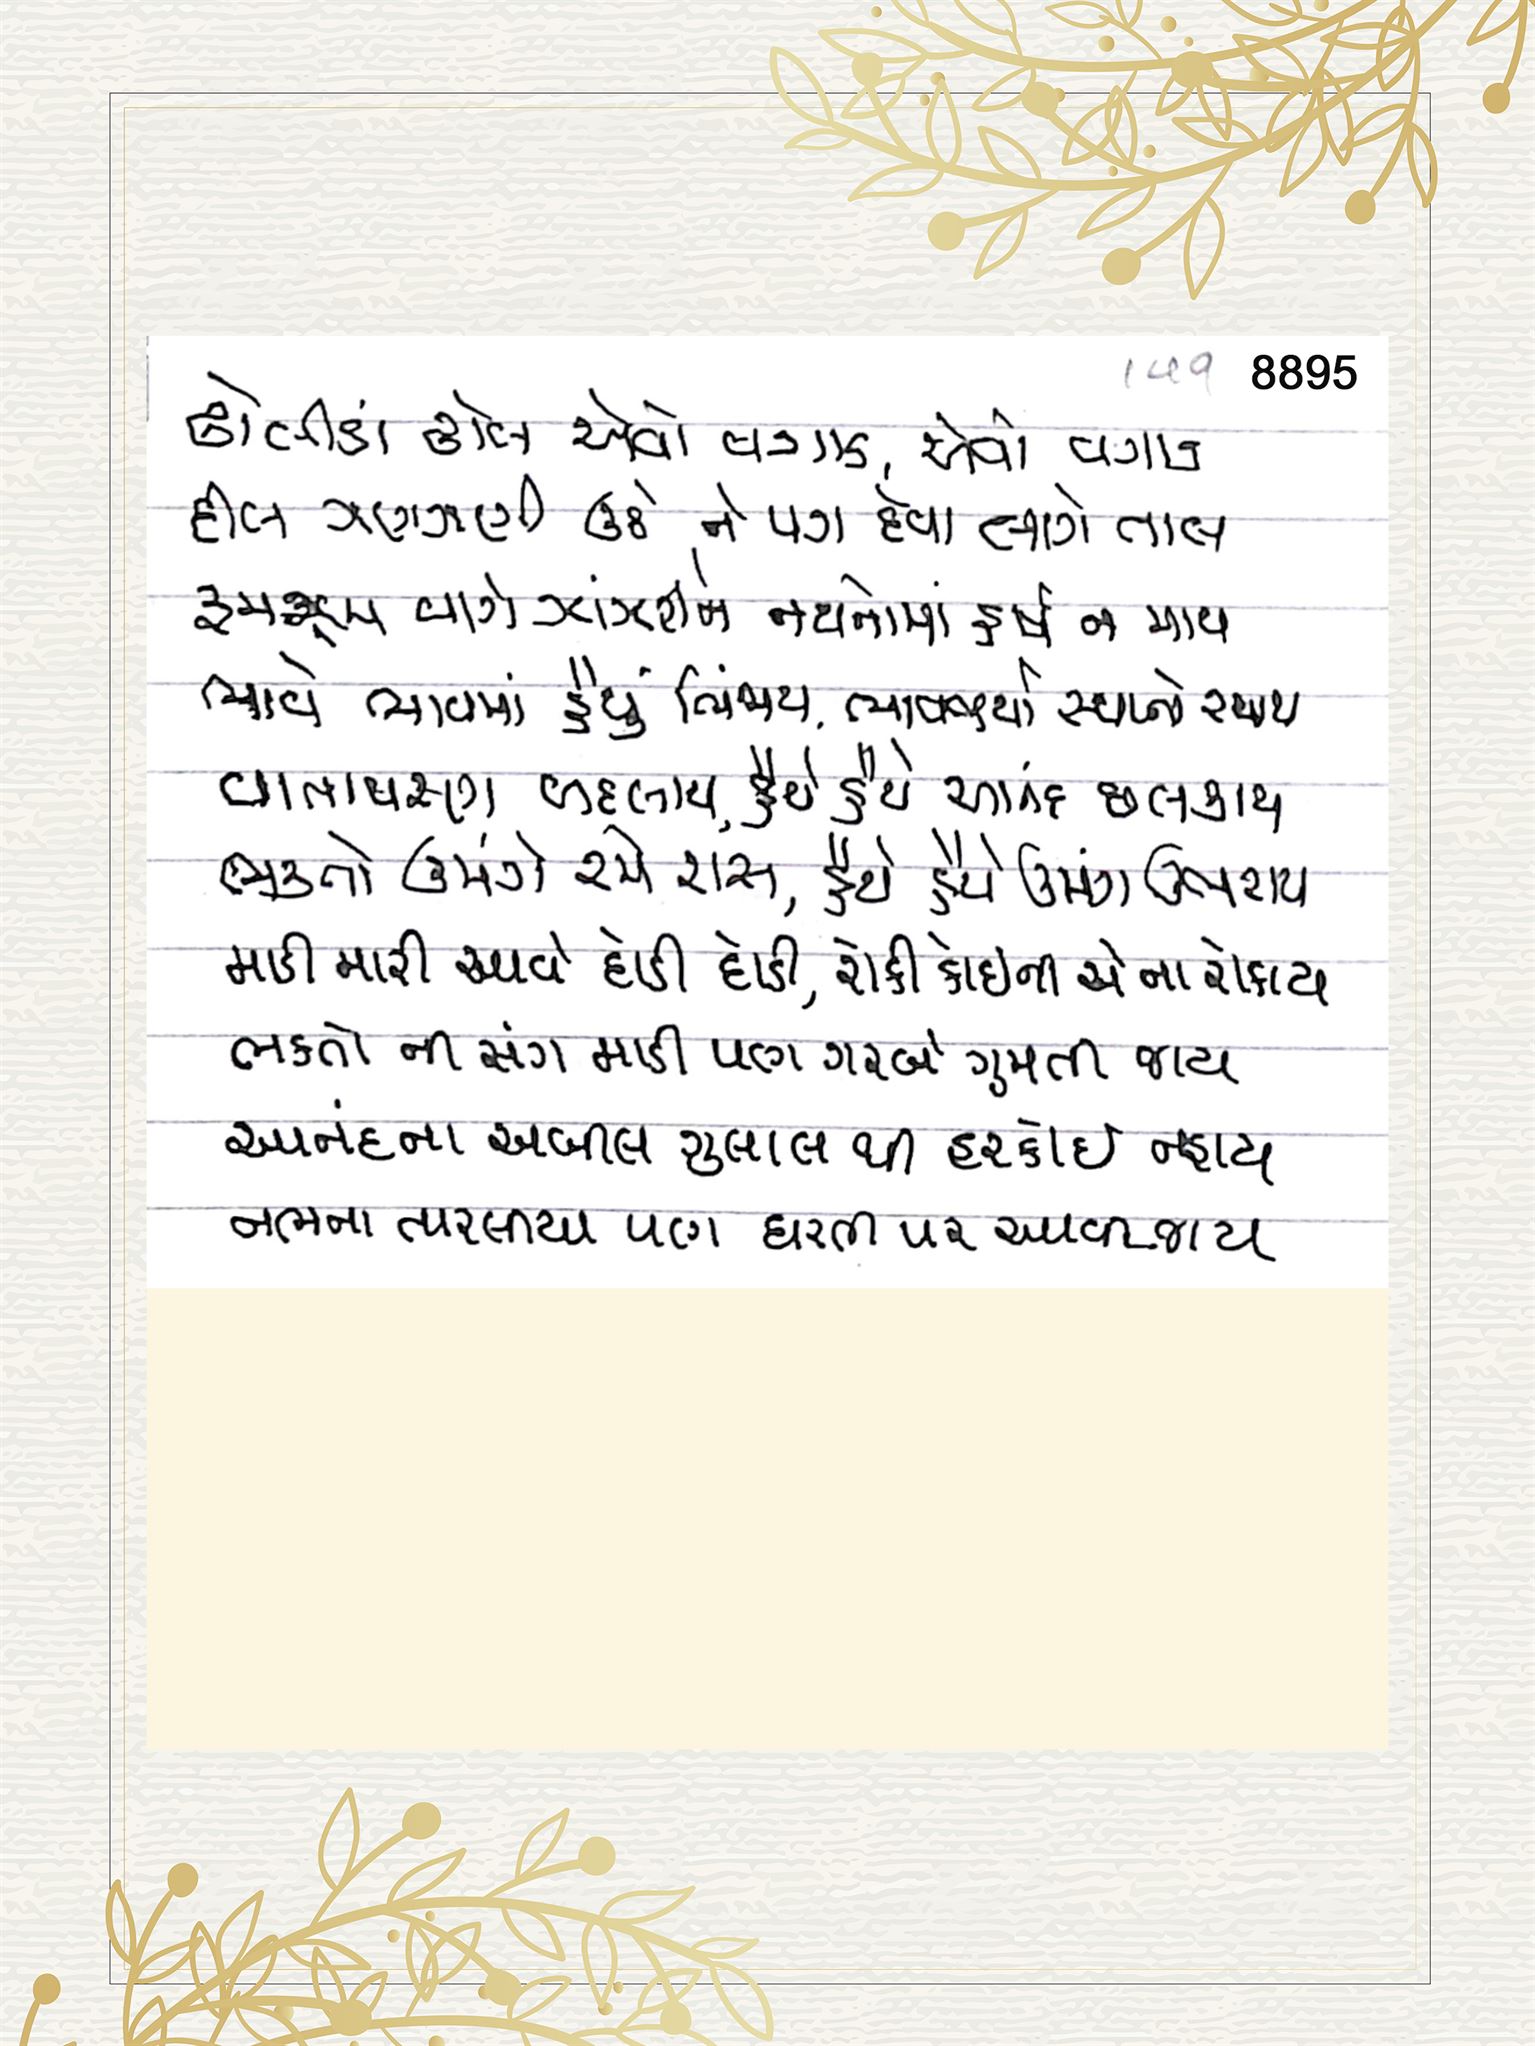 ૧૫૧ 8895
ઢોલીડાં ઢોલ એવો વગાડ, એવો વગાડ
દીલ ઝણઝણી ઉઠે, ને પગ દેવા લાગે તાલ
રૂમઝૂમ વાગે ઝાંઝરીને નયનોમાં હર્ષ ન માય
ભાવે ભાવમાં હૈયું ભિંજાય, ભાવભર્યા સ્પંદનો રચાય
વાતાવરણ બદલાય, હૈયે હૈયે આનંદ છલકાય
ભક્તો ઉમંગે રમે રાસ, હૈયે હૈયે ઉમંગ ઉભરાય
માડી મારી આવે દોડી દોડી, રોકી કોઇની એ ના રોકાય
ભકતો ની સંગ માડી પણ ગરબે ગુમતી જાય
આનંદના અબીલ ગુલાલ થી હરકોઇ નહાય
નભના તારલીયા પણ ધરતી પર આવી જાય